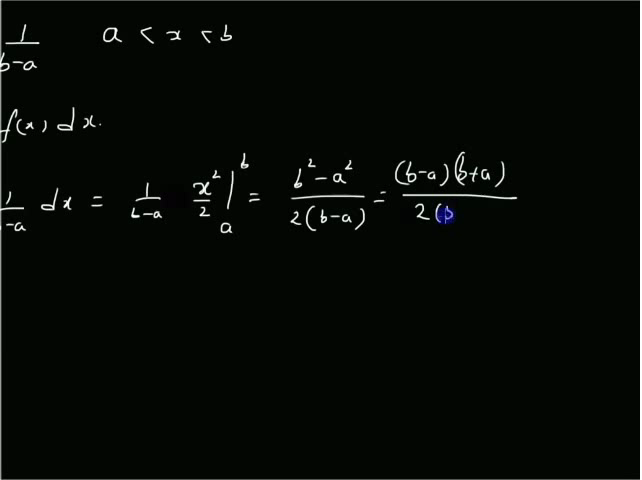 1/(b-a) a < x < b
f(x) dx.
1/(b-a) dx = 1/(b-a) x²/2 |ₐᵇ = (b² - a²)/(2(b-a)) = ((b-a)(b+a))/(2(b